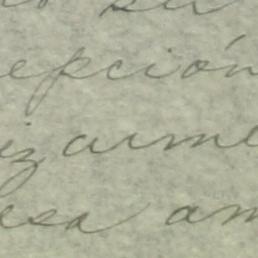 su
epción
izarme
esa am